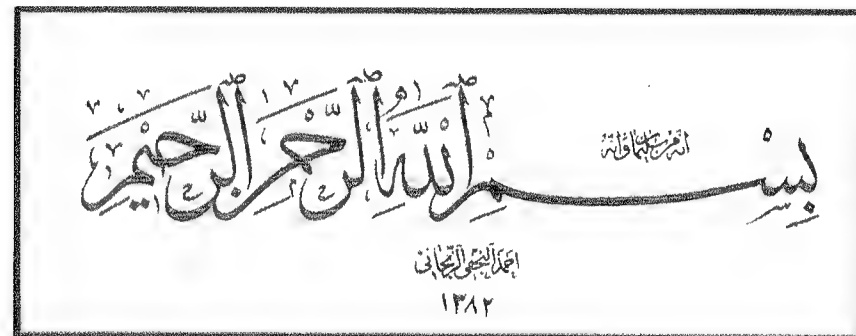 إنه من سليمان وإنه
بِسْمِ ٱللَّهِ ٱلرَّحْمَٰنِ ٱلرَّحِيمِ
احمد النجفي الزنجاني
١٣٨٢